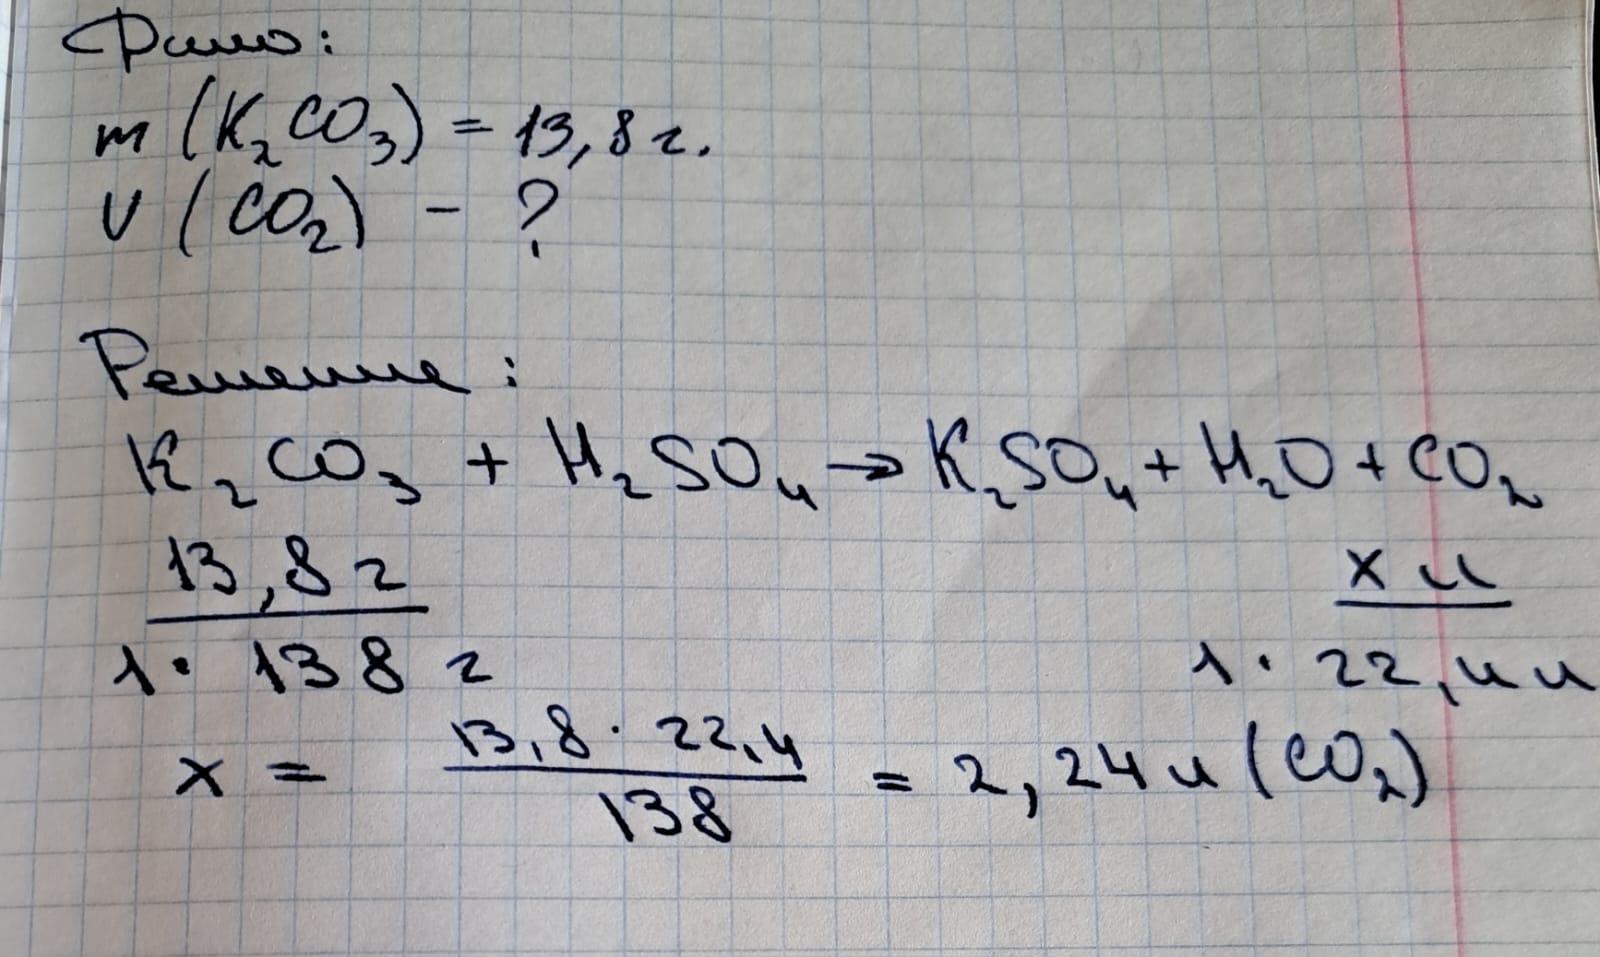 Дано:
m (K₂CO₃) = 13,8 г.
V (CO₂) - ?
Решение:
K₂CO₃ + H₂SO₄ → K₂SO₄ + H₂O + CO₂
13,8 г x л
1 · 138 г 1 · 22,4 л
x = 13,8 · 22,4 / 138 = 2,24 л (CO₂)